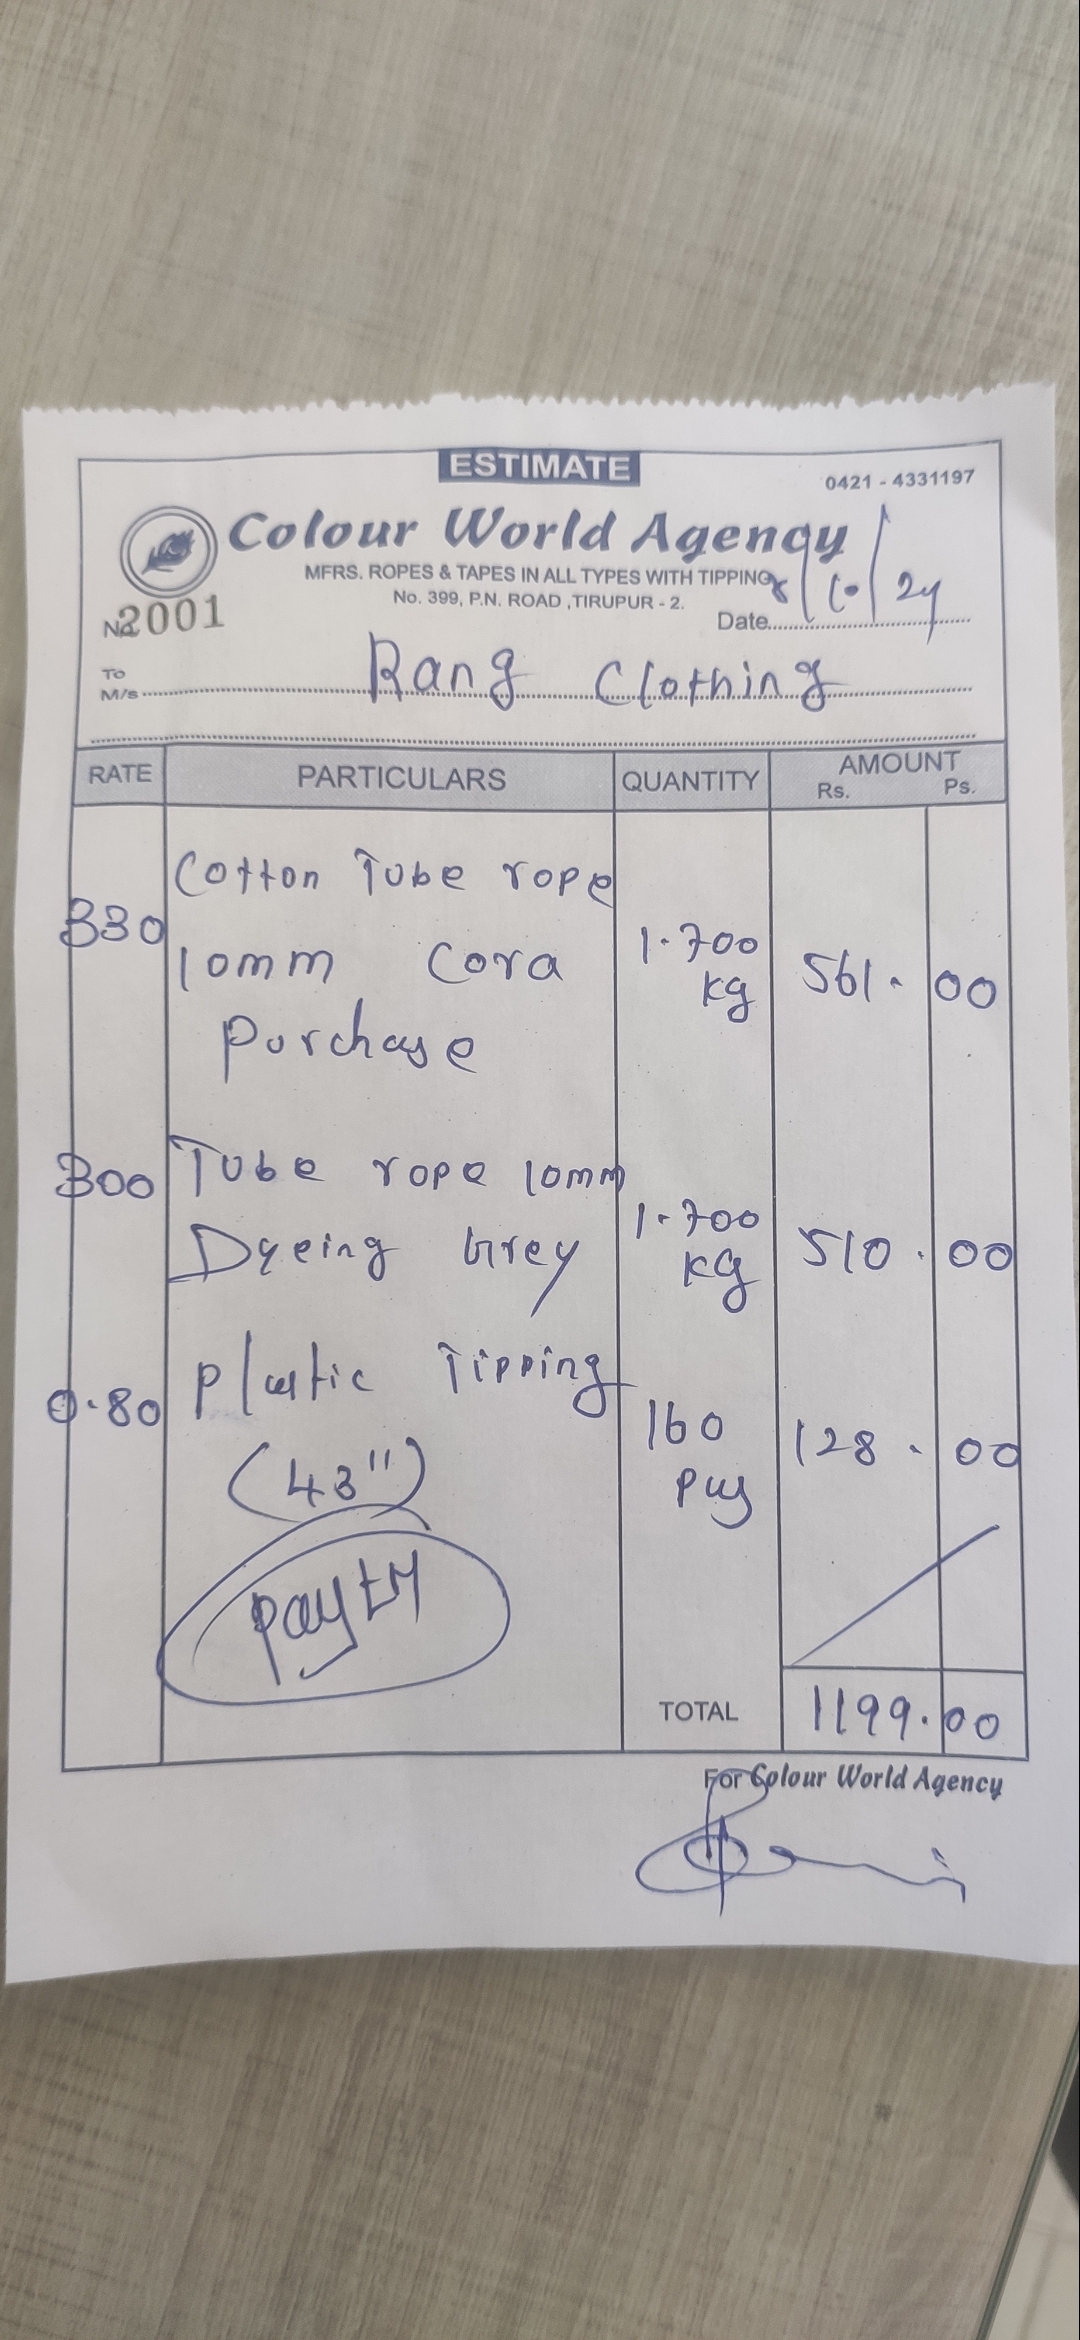 ESTIMATE
0421 - 4331197
Colour World Agency
MFRS. ROPES & TAPES IN ALL TYPES WITH TIPPING
No. 399, P.N. ROAD ,TIRUPUR - 2.
No. 2001
Date 8/10/24
To
M/s Rang Clothing
RATE PARTICULARS QUANTITY AMOUNT
Rs. Ps.
Cotton Tube rope
330 10mm Cora 1.700 kg 561.00
Purchase
300 Tube rope 10mm
Dyeing Grey 1.700 kg 510.00
0.80 Plastic Tipping 160 Pcs 128.00
(43")
Paytm
TOTAL 1199.00
For Colour World Agency